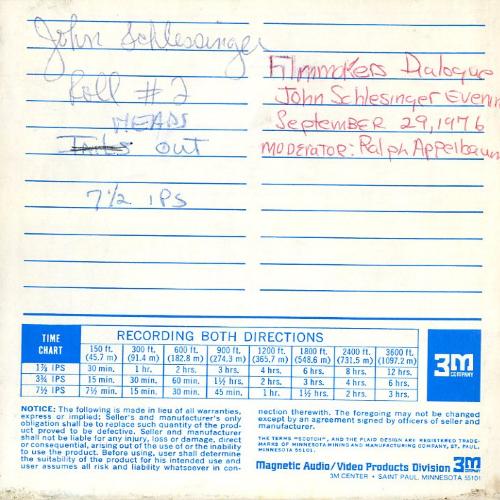 John Schlessinger
Roll #2
HEADS
Tails OUT
7½ IPS
Filmmakers Dialogue
John Schlesinger Evenin
September 29, 1976
MODERATOR: Ralph Appelbaum
TIME CHART RECORDING BOTH DIRECTIONS
150 ft. (45.7 m) 300 ft. (91.4 m) 600 ft. (182.8 m) 900 ft. (274.3 m) 1200 ft. (365.7 m) 1800 ft. (548.6 m) 2400 ft. (731.5 m) 3600 ft. (1097.2 m)
1⅞ IPS 30 min. 1 hr. 2 hrs. 3 hrs. 4 hrs. 6 hrs. 8 hrs. 12 hrs.
3¾ IPS 15 min. 30 min. 60 min. 1½ hrs. 2 hrs. 3 hrs. 4 hrs. 6 hrs.
7½ IPS 7½ min. 15 min. 30 min. 45 min. 1 hr. 1½ hrs. 2 hrs. 3 hrs.
3M
COMPANY
NOTICE: The following is made in lieu of all warranties,
express or implied: Seller's and manufacturer's only
obligation shall be to replace such quantity of the prod-
uct proved to be defective. Seller and manufacturer
shall not be liable for any injury, loss or damage, direct
or consequential, arising out of the use of or the inability
to use the product. Before using, user shall determine
the suitability of the product for his intended use and
user assumes all risk and liability whatsoever in con-
nection therewith. The foregoing may not be changed
except by an agreement signed by officers of seller and
manufacturer.
THE TERMS "SCOTCH", AND THE PLAID DESIGN ARE REGISTERED TRADE-
MARKS OF MINNESOTA MINING AND MANUFACTURING COMPANY, ST. PAUL,
MINNESOTA 55101.
Magnetic Audio/Video Products Division 3M COMPANY
3M CENTER • SAINT PAUL, MINNESOTA 55101